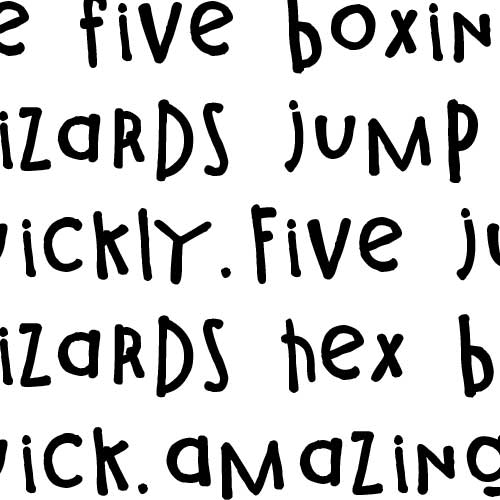 e five boxin
izards jump
uickly. Five ju
izards hex b
uick. amazing